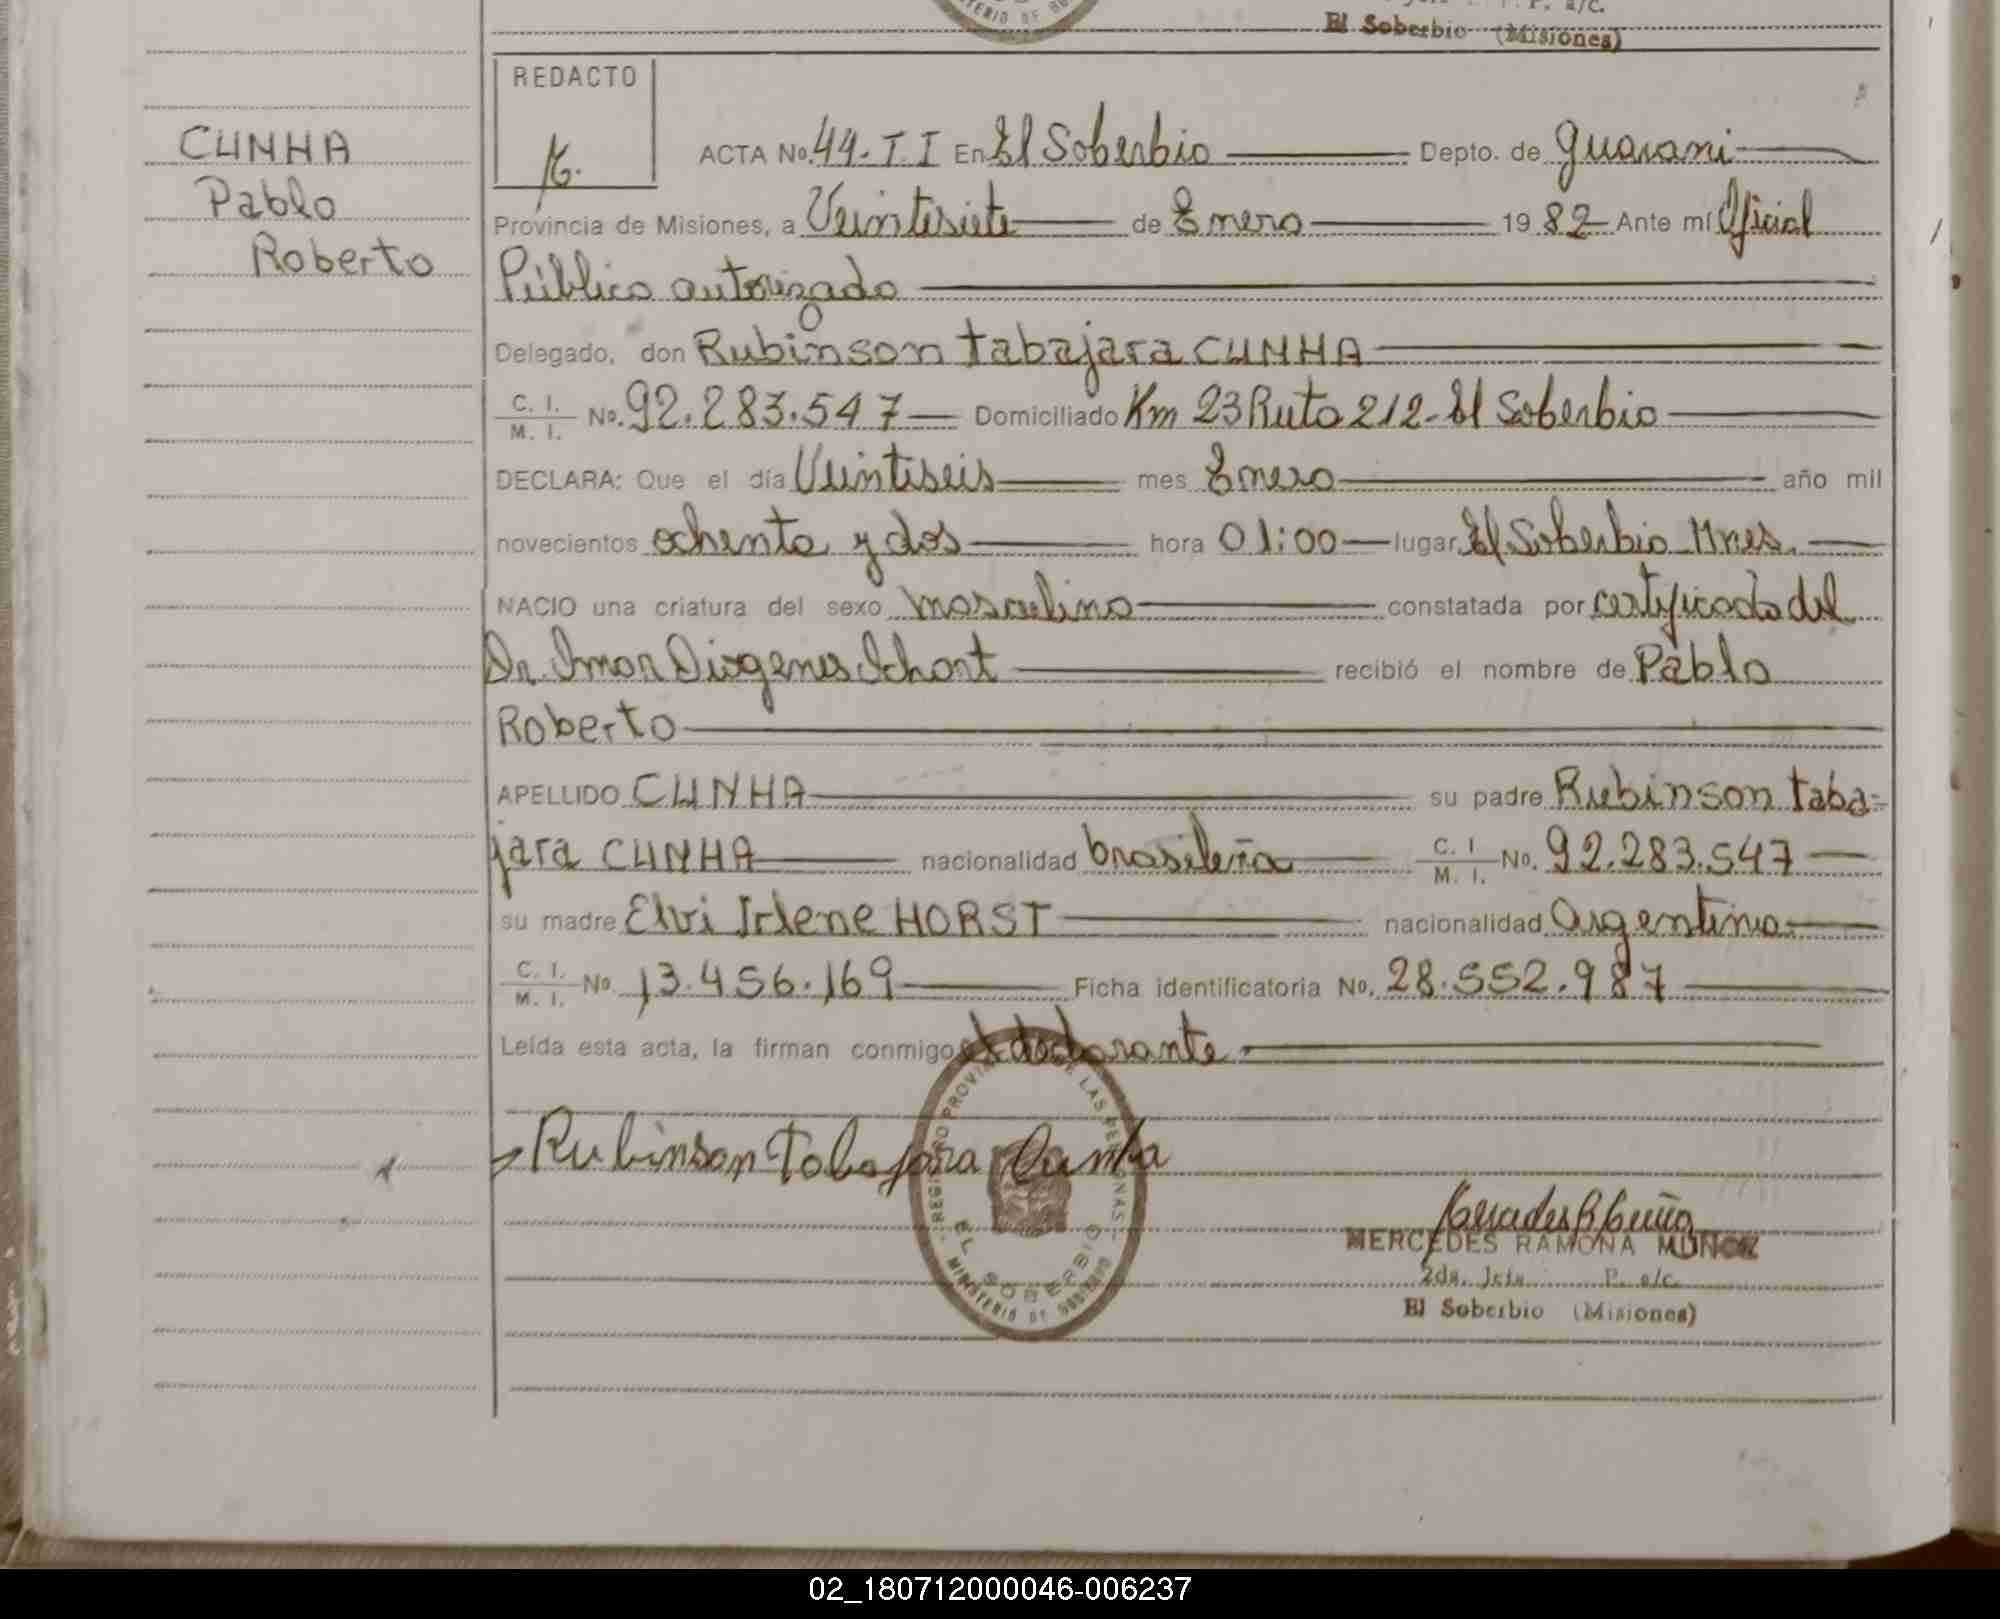 MINISTERIO DE
El Soberbio (Misiones)
REDACTO
CUNHA
Pablo
Roberto
ACTA No. 44-II En El Soberbio Depto. de Guarani
Provincia de Misiones, a Veintisiete de Enero 1982 Ante mí Oficial
Público autorizado
Delegado, don Rubinson tabajara CUNHA
C. I. / M. I. No. 92.283.547 Domiciliado Km 23 Ruta 212-El Soberbio
DECLARA: Que el día Veintiseis mes Enero año mil
novecientos ochenta y dos hora 01:00 lugar El Soberbio Mnes.
NACIO una criatura del sexo masculino constatada por certificado del
Dr. Omar Diogenes recibió el nombre de Pablo
Roberto
APELLIDO CUNHA su padre Rubinson taba-
jara CUNHA nacionalidad brasileña C. I / M. I. No. 92.283.547
su madre Elvi Irlene HORST nacionalidad Argentina
C. I. / M. I. No 13.456.169 Ficha identificatoria No. 28.552.987
Leída esta acta, la firman conmigo el declarante
Rubinson Tabajara Cunha
REGISTRO PROVINCIAL DE LAS PERSONAS
EL SOBERBIO
MINISTERIO DE GOBIERNO
MERCEDES RAMONA MUÑOZ
2da. Jefa P. a/c.
El Soberbio (Misiones)
02_180712000046-006237